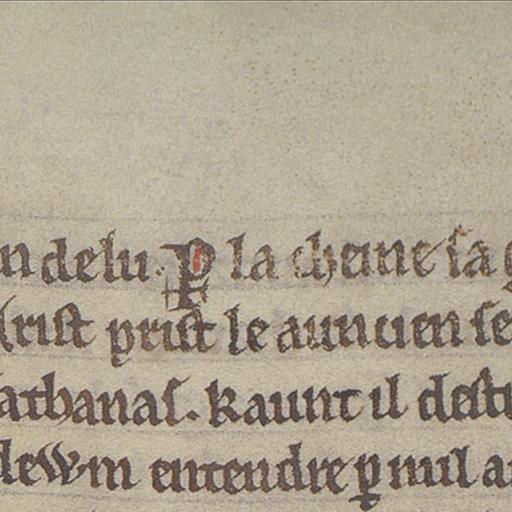 n de lu. P la cheine sa
krist prist le auncien se
athanas. Kaunt il destr
lewm entendre p mil a